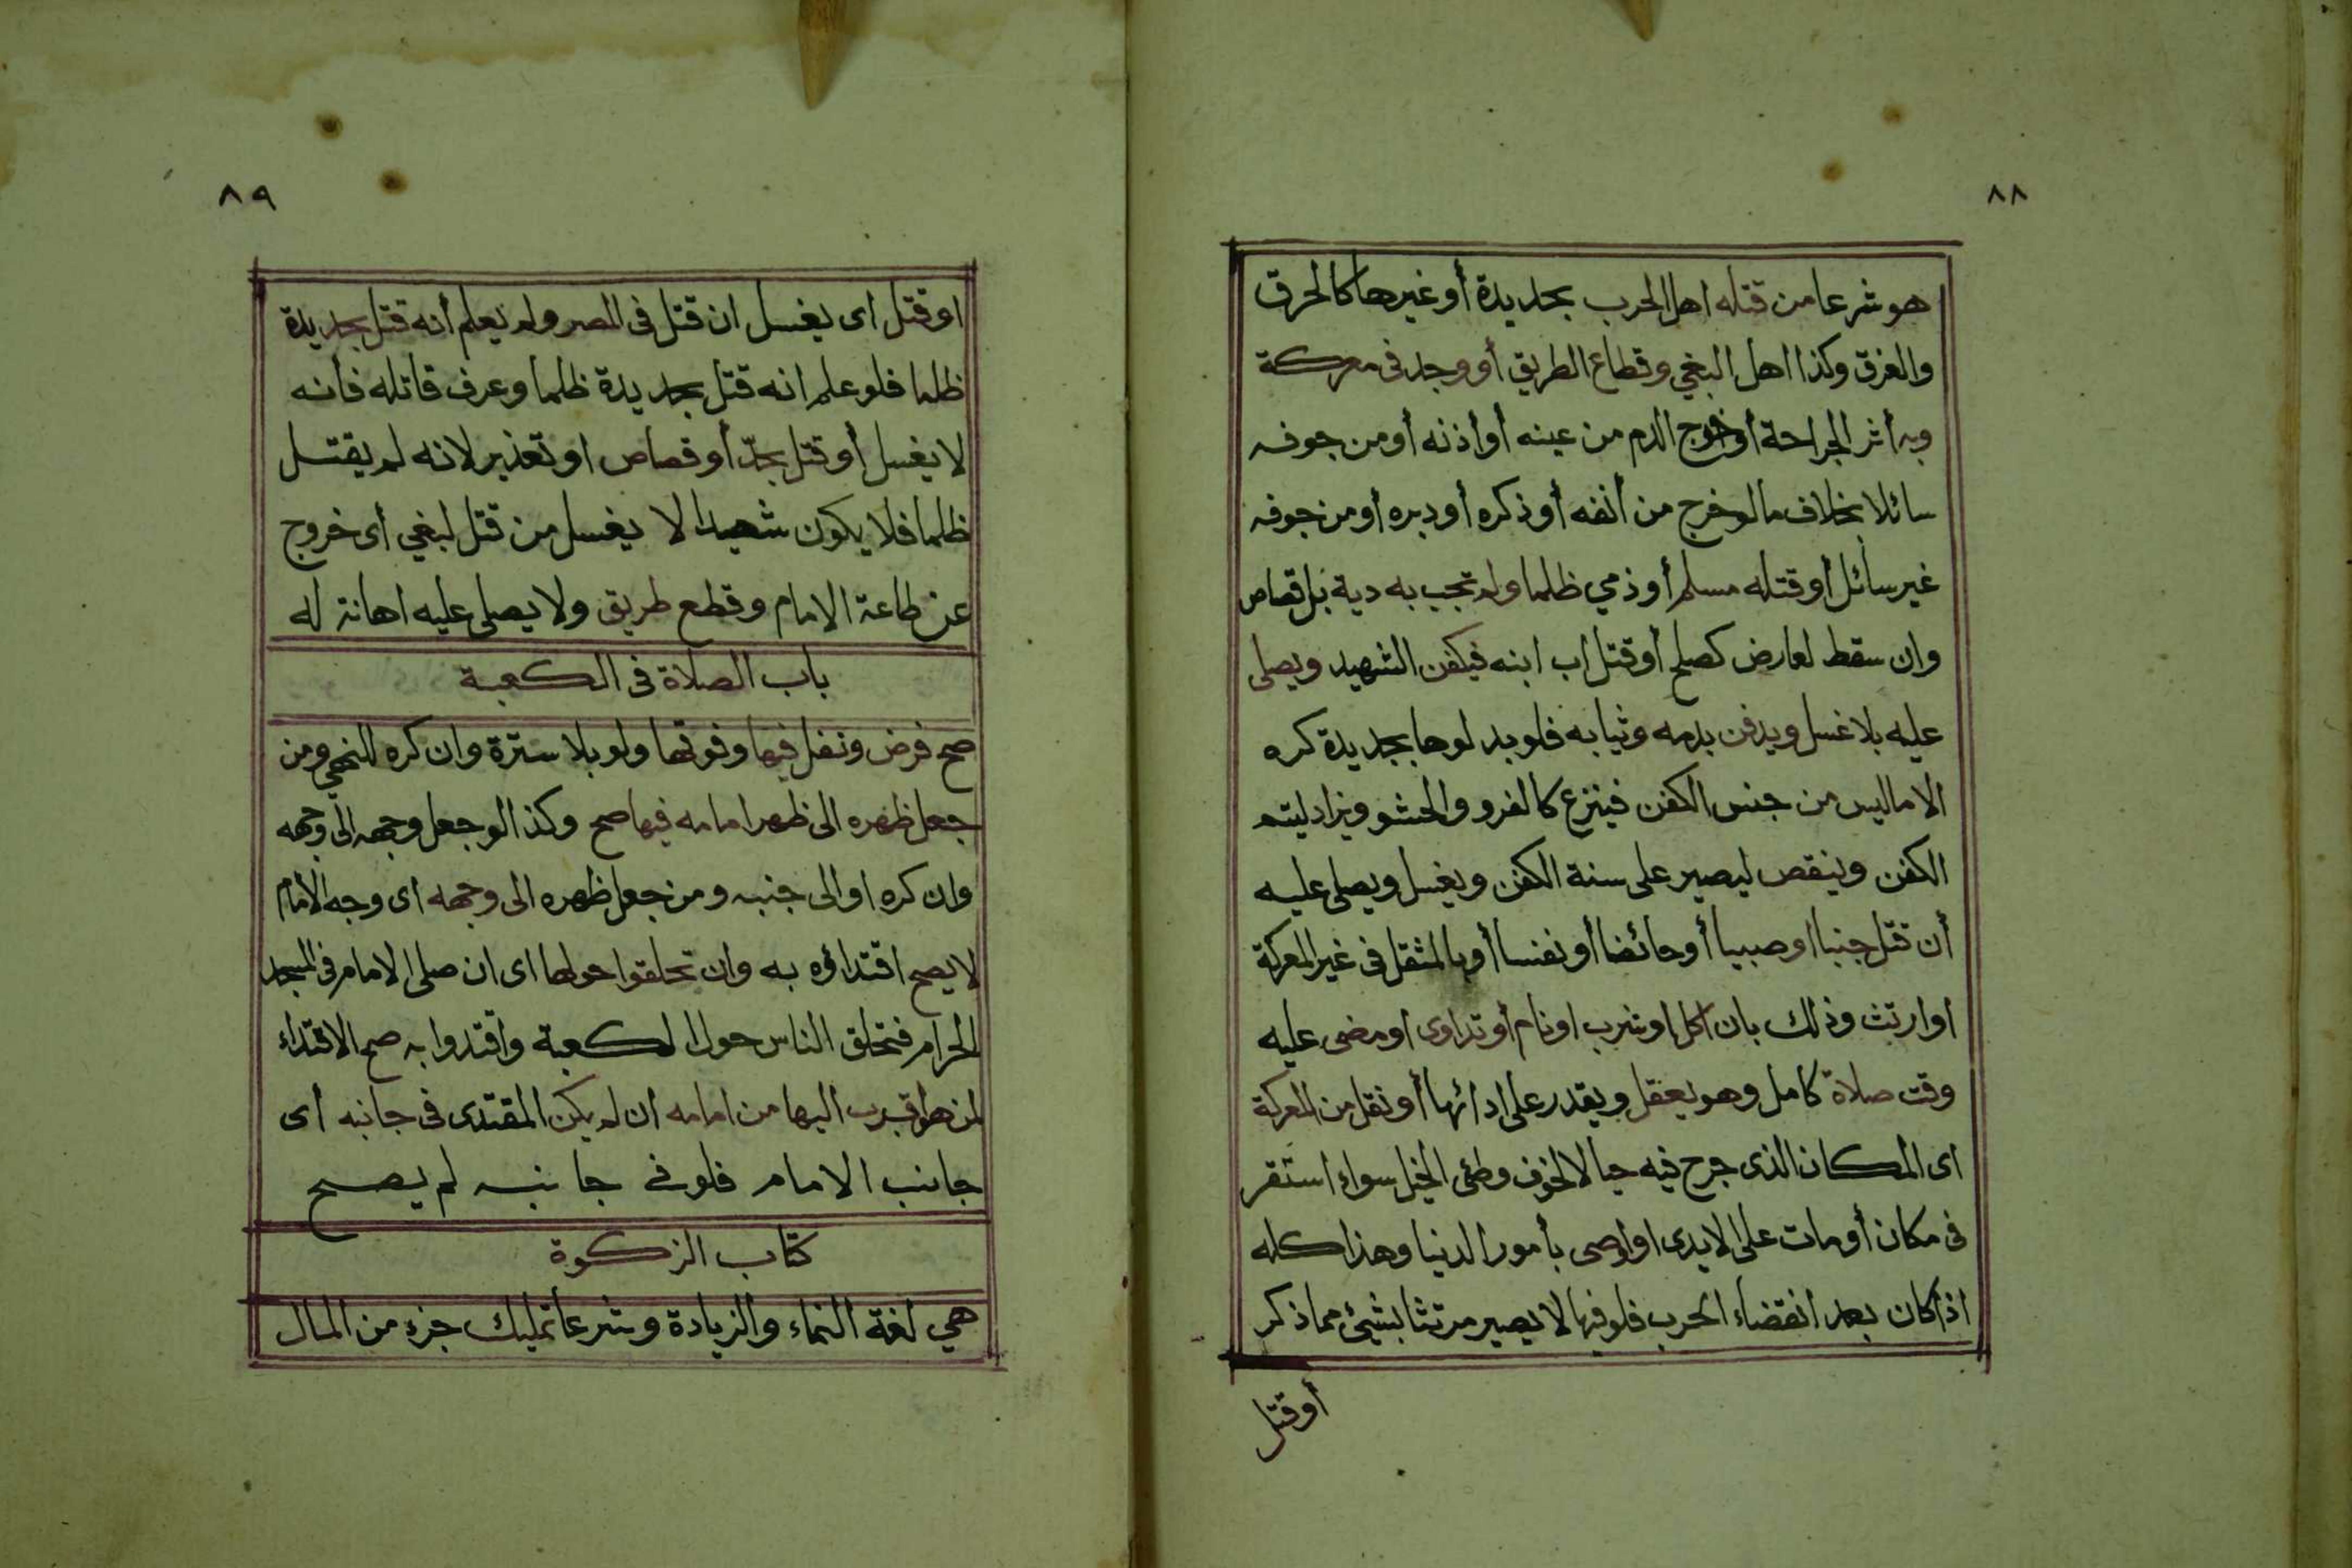 ٨٨
هو شرعا من قتله اهل الحرب بحديدة أو غيرها كالحرق
والغرق وكذا اهل البغي وقطاع الطريق أو وجد فى معركة
وبه أثر الجراحة أو خروج الدم من عينه أو أذنه أو من جوفه
سائلا بخلاف ما لو خرج من أنفه أو ذكره أو دبره أو من جوفه
غير سائل أو قتله مسلم أو ذمي ظلما ولم تجب به دية بل قصاص
وان سقط لعارض كصلح أو قتل اب ابنه فيكفن الشهيد ويصلى
عليه بلا غسل ويدفن بدمه وثيابه فلو بدلوها بجديدة كره
الا ما ليس من جنس الكفن فينزع كالفرو والحشو ويزاد ليتم
الكفن وينقص ليصير على سنة الكفن ويغسل ويصلى عليه
أن قتل جنبا او صبيا أو حائضا أو نفسا أو بالمثقل فى غير المعركة
او ارتث وذلك بان اكل او شرب او نام أو تداوى او مضى عليه
وقت صلاة كامل وهو يعقل ويقدر على ادائها أو نقل من المعركة
اى المكان الذى جرح فيه حيا لا لخوف وطئ الخيل سواء استقر
فى مكان أو مات على الايدى او اوصى بأمور الدنيا وهذا كله
اذا كان بعد انقضاء الحرب فلو فيها لا يصير مرتثا بشيئ مما ذكر
أو قتل
٨٩
او قتل اى يغسل ان قتل فى المصر ولم يعلم أنه قتل بحديدة
ظلما فلو علم انه قتل بحديدة ظلما وعرف قاتله فأنه
لا يغسل أو قتل بحدّ أو قصاص او تعذير لانه لم يقتل
ظلما فلا يكون شهيدا لا يغسل من قتل لبغي أى خروج
عن طاعة الامام وقطع طريق ولا يصلى عليه اهانة له
باب الصلاة فى الكعبة
صح فرض ونفل فيها وفوقها ولو بلا سترة وان كره للنهي ومن
جعل ظهره الى ظهر امامه فيها صح وكذا لو جعل وجهه الى وجهه
وان كره او الى جنبه ومن جعل ظهره الى وجهه اى وجه الأمام
لا يصح اقتداؤه به وان تحلقوا حولها اى ان صلى الامام فى المسجد
الحرام فتحلق الناس حول الكعبة واقتدوا به صح الاقتداء
لمن هو اقرب اليها من امامه ان لم يكن المقتدى فى جانبه أى
جانب الامام فلو فى جانبه لم يصح
كتاب الزكوة
هي لغة النماء والزيادة وشرعا تمليك جزء من المال